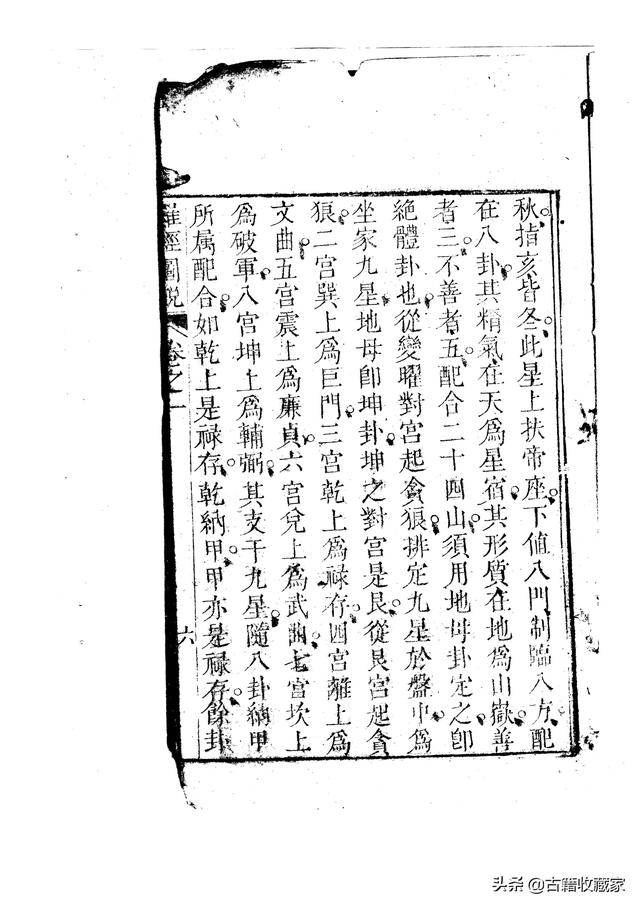 秋指亥皆冬此星上扶帝座下値八門制臨八方配
在八卦其精氣在天爲星宿其形質在地爲山嶽善
者三不善者五配合二十四山須用地母卦定之卽
絶體卦也從變曜對宮起貪狼排定九星於盤中爲
坐家九星地母卽坤卦坤之對宮是艮從艮宮起貪
狼二宮巽上爲巨門三宮乾上爲祿存四宮離上爲
文曲五宮震上爲廉貞六宮兌上爲武曲七宮坎上
爲破軍八宮坤上爲輔弼其支干九星隨八卦納甲
所属配合如乾上是祿存乾納甲甲亦是祿存餘卦
羅經圖說 卷之一 六
头条 @古籍收藏家